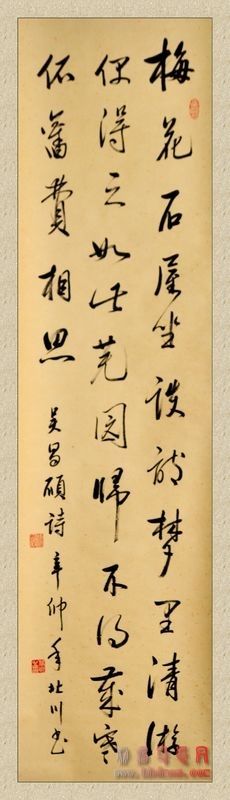 梅花石屋坐谈诗梦里清游
偶得之如此荒园归不得岁寒
依舊費相思
吴昌碩詩辛卯年北川书